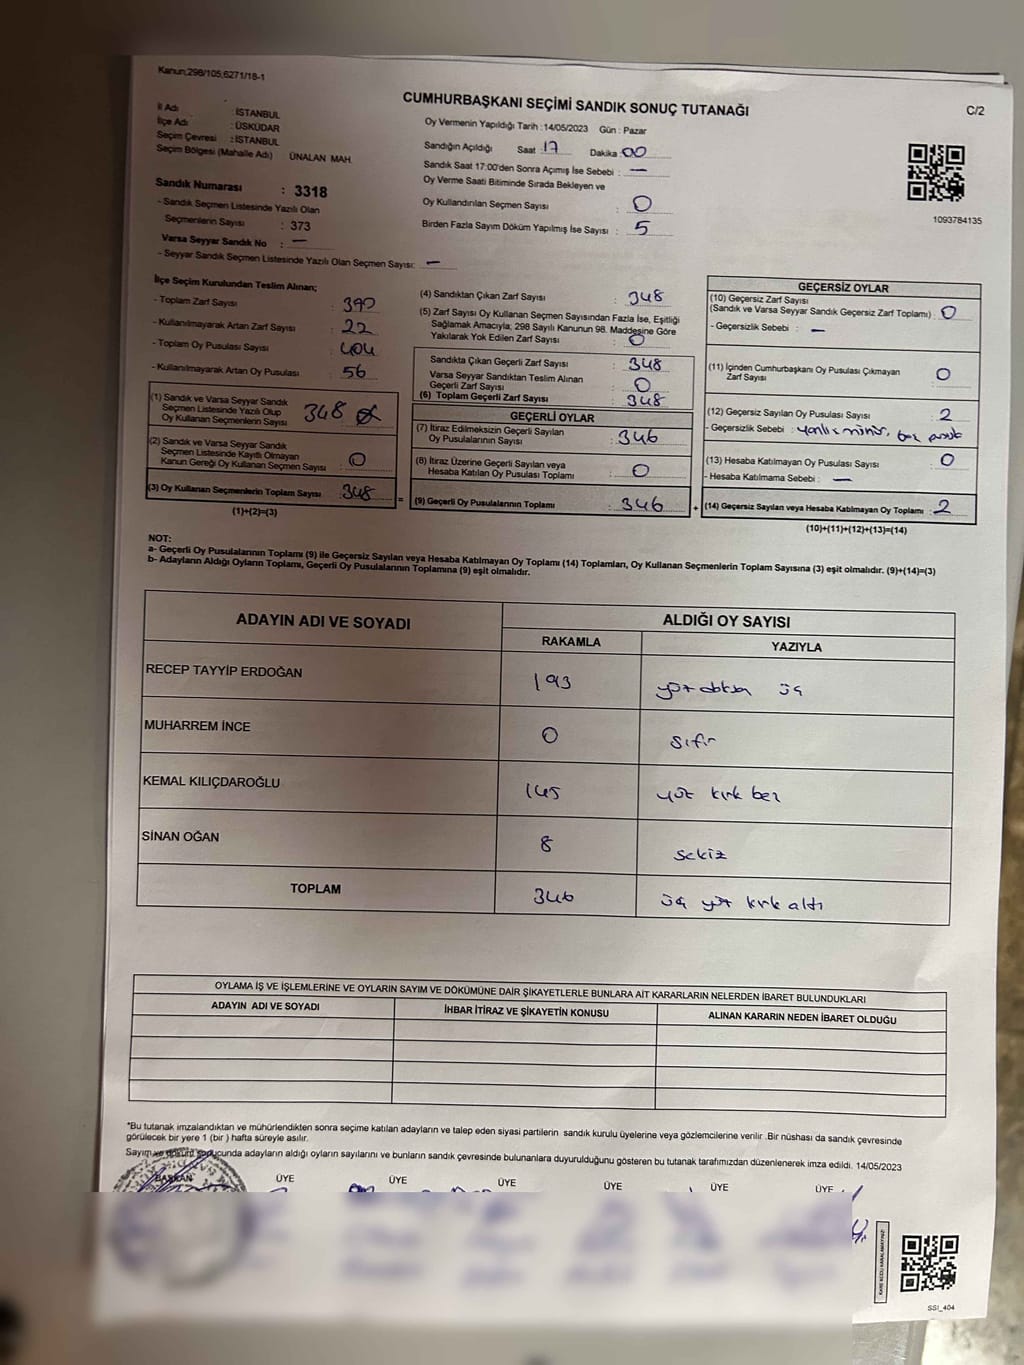 Kanun;298/105,6271/18-1
CUMHURBAŞKANI SEÇİMİ SANDIK SONUÇ TUTANAĞI
C/2
İl Adı : İSTANBUL
İlçe Adı : ÜSKÜDAR
Seçim Çevresi : İSTANBUL
Seçim Bölgesi (Mahalle Adı) ÜNALAN MAH.
Sandık Numarası : 3318
- Sandık Seçmen Listesinde Yazılı Olan
Seçmenlerin Sayısı : 373
Varsa Seyyar Sandık No : —
- Seyyar Sandık Seçmen Listesinde Yazılı Olan Seçmen Sayısı: —
Oy Vermenin Yapıldığı Tarih : 14/05/2023 Gün : Pazar
Sandığın Açıldığı Saat 17 Dakika 00
Sandık Saat 17:00'den Sonra Açılmış İse Sebebi : —
Oy Verme Saati Bitiminde Sırada Bekleyen ve
Oy Kullandırılan Seçmen Sayısı : 0
Birden Fazla Sayım Döküm Yapılmış İse Sayısı : 5
1093784135
İlçe Seçim Kurulundan Teslim Alınan;
- Toplam Zarf Sayısı : 390
- Kullanılmayarak Artan Zarf Sayısı : 22
- Toplam Oy Pusulası Sayısı : 404
- Kullanılmayarak Artan Oy Pusulası : 56
(1) Sandık ve Varsa Seyyar Sandık
Seçmen Listesinde Yazılı Olup
Oy Kullanan Seçmenlerin Sayısı : 348
(2) Sandık ve Varsa Seyyar Sandık
Seçmen Listesinde Kayıtlı Olmayan
Kanun Gereği Oy Kullanan Seçmen Sayısı : 0
(3) Oy Kullanan Seçmenlerin Toplam Sayısı : 348
(1)+(2)=(3)
(4) Sandıktan Çıkan Zarf Sayısı : 348
(5) Zarf Sayısı Oy Kullanan Seçmen Sayısından Fazla İse, Eşitliği
Sağlamak Amacıyla; 298 Sayılı Kanunun 98. Maddesine Göre
Yakılarak Yok Edilen Zarf Sayısı : 0
Sandıkta Çıkan Geçerli Zarf Sayısı : 348
Varsa Seyyar Sandıktan Teslim Alınan
Geçerli Zarf Sayısı : 0
(6) Toplam Geçerli Zarf Sayısı : 348
GEÇERLİ OYLAR
(7) İtiraz Edilmeksizin Geçerli Sayılan
Oy Pusulalarının Sayısı : 346
(8) İtiraz Üzerine Geçerli Sayılan veya
Hesaba Katılan Oy Pusulası Toplamı : 0
= (9) Geçerli Oy Pusulalarının Toplamı : 346
GEÇERSİZ OYLAR
(10) Geçersiz Zarf Sayısı
(Sandık ve Varsa Seyyar Sandık Geçersiz Zarf Toplamı) : 0
- Geçersizlik Sebebi : —
(11) İçinden Cumhurbaşkanı Oy Pusulası Çıkmayan
Zarf Sayısı : 0
(12) Geçersiz Sayılan Oy Pusulası Sayısı : 2
- Geçersizlik Sebebi :
(13) Hesaba Katılmayan Oy Pusulası Sayısı : 0
- Hesaba Katılmama Sebebi : —
+ (14) Geçersiz Sayılan veya Hesaba Katılmayan Oy Toplamı : 2
(10)+(11)+(12)+(13)=(14)
NOT:
a- Geçerli Oy Pusulalarının Toplamı (9) ile Geçersiz Sayılan veya Hesaba Katılmayan Oy Toplamı (14) Toplamları, Oy Kullanan Seçmenlerin Toplam Sayısına (3) eşit olmalıdır. (9)+(14)=(3)
b- Adayların Aldığı Oyların Toplamı, Geçerli Oy Pusulalarının Toplamına (9) eşit olmalıdır.
ADAYIN ADI VE SOYADI
ALDIĞI OY SAYISI
RAKAMLA YAZIYLA
RECEP TAYYİP ERDOĞAN 193 yüz doksan üç
MUHARREM İNCE 0 sıfır
KEMAL KILIÇDAROĞLU 145 yüz kırk beş
SİNAN OĞAN 8 sekiz
TOPLAM 346 üç yüz kırk altı
OYLAMA İŞ VE İŞLEMLERİNE VE OYLARIN SAYIM VE DÖKÜMÜNE DAİR ŞİKAYETLERLE BUNLARA AİT KARARLARIN NELERDEN İBARET BULUNDUKLARI
ADAYIN ADI VE SOYADI İHBAR İTİRAZ VE ŞİKAYETİN KONUSU ALINAN KARARIN NEDEN İBARET OLDUĞU
*Bu tutanak imzalandıktan ve mühürlendikten sonra seçime katılan adayların ve talep eden siyasi partilerin sandık kurulu üyelerine veya gözlemcilerine verilir .Bir nüshası da sandık çevresinde
görülecek bir yere 1 (bir ) hafta süreyle asılır.
Sayım ve döküm sonucunda adayların aldığı oyların sayılarını ve bunların sandık çevresinde bulunanlara duyurulduğunu gösteren bu tutanak tarafımızdan düzenlenerek imza edildi. 14/05/2023
BAŞKAN ÜYE ÜYE ÜYE ÜYE ÜYE ÜYE
SSI_404